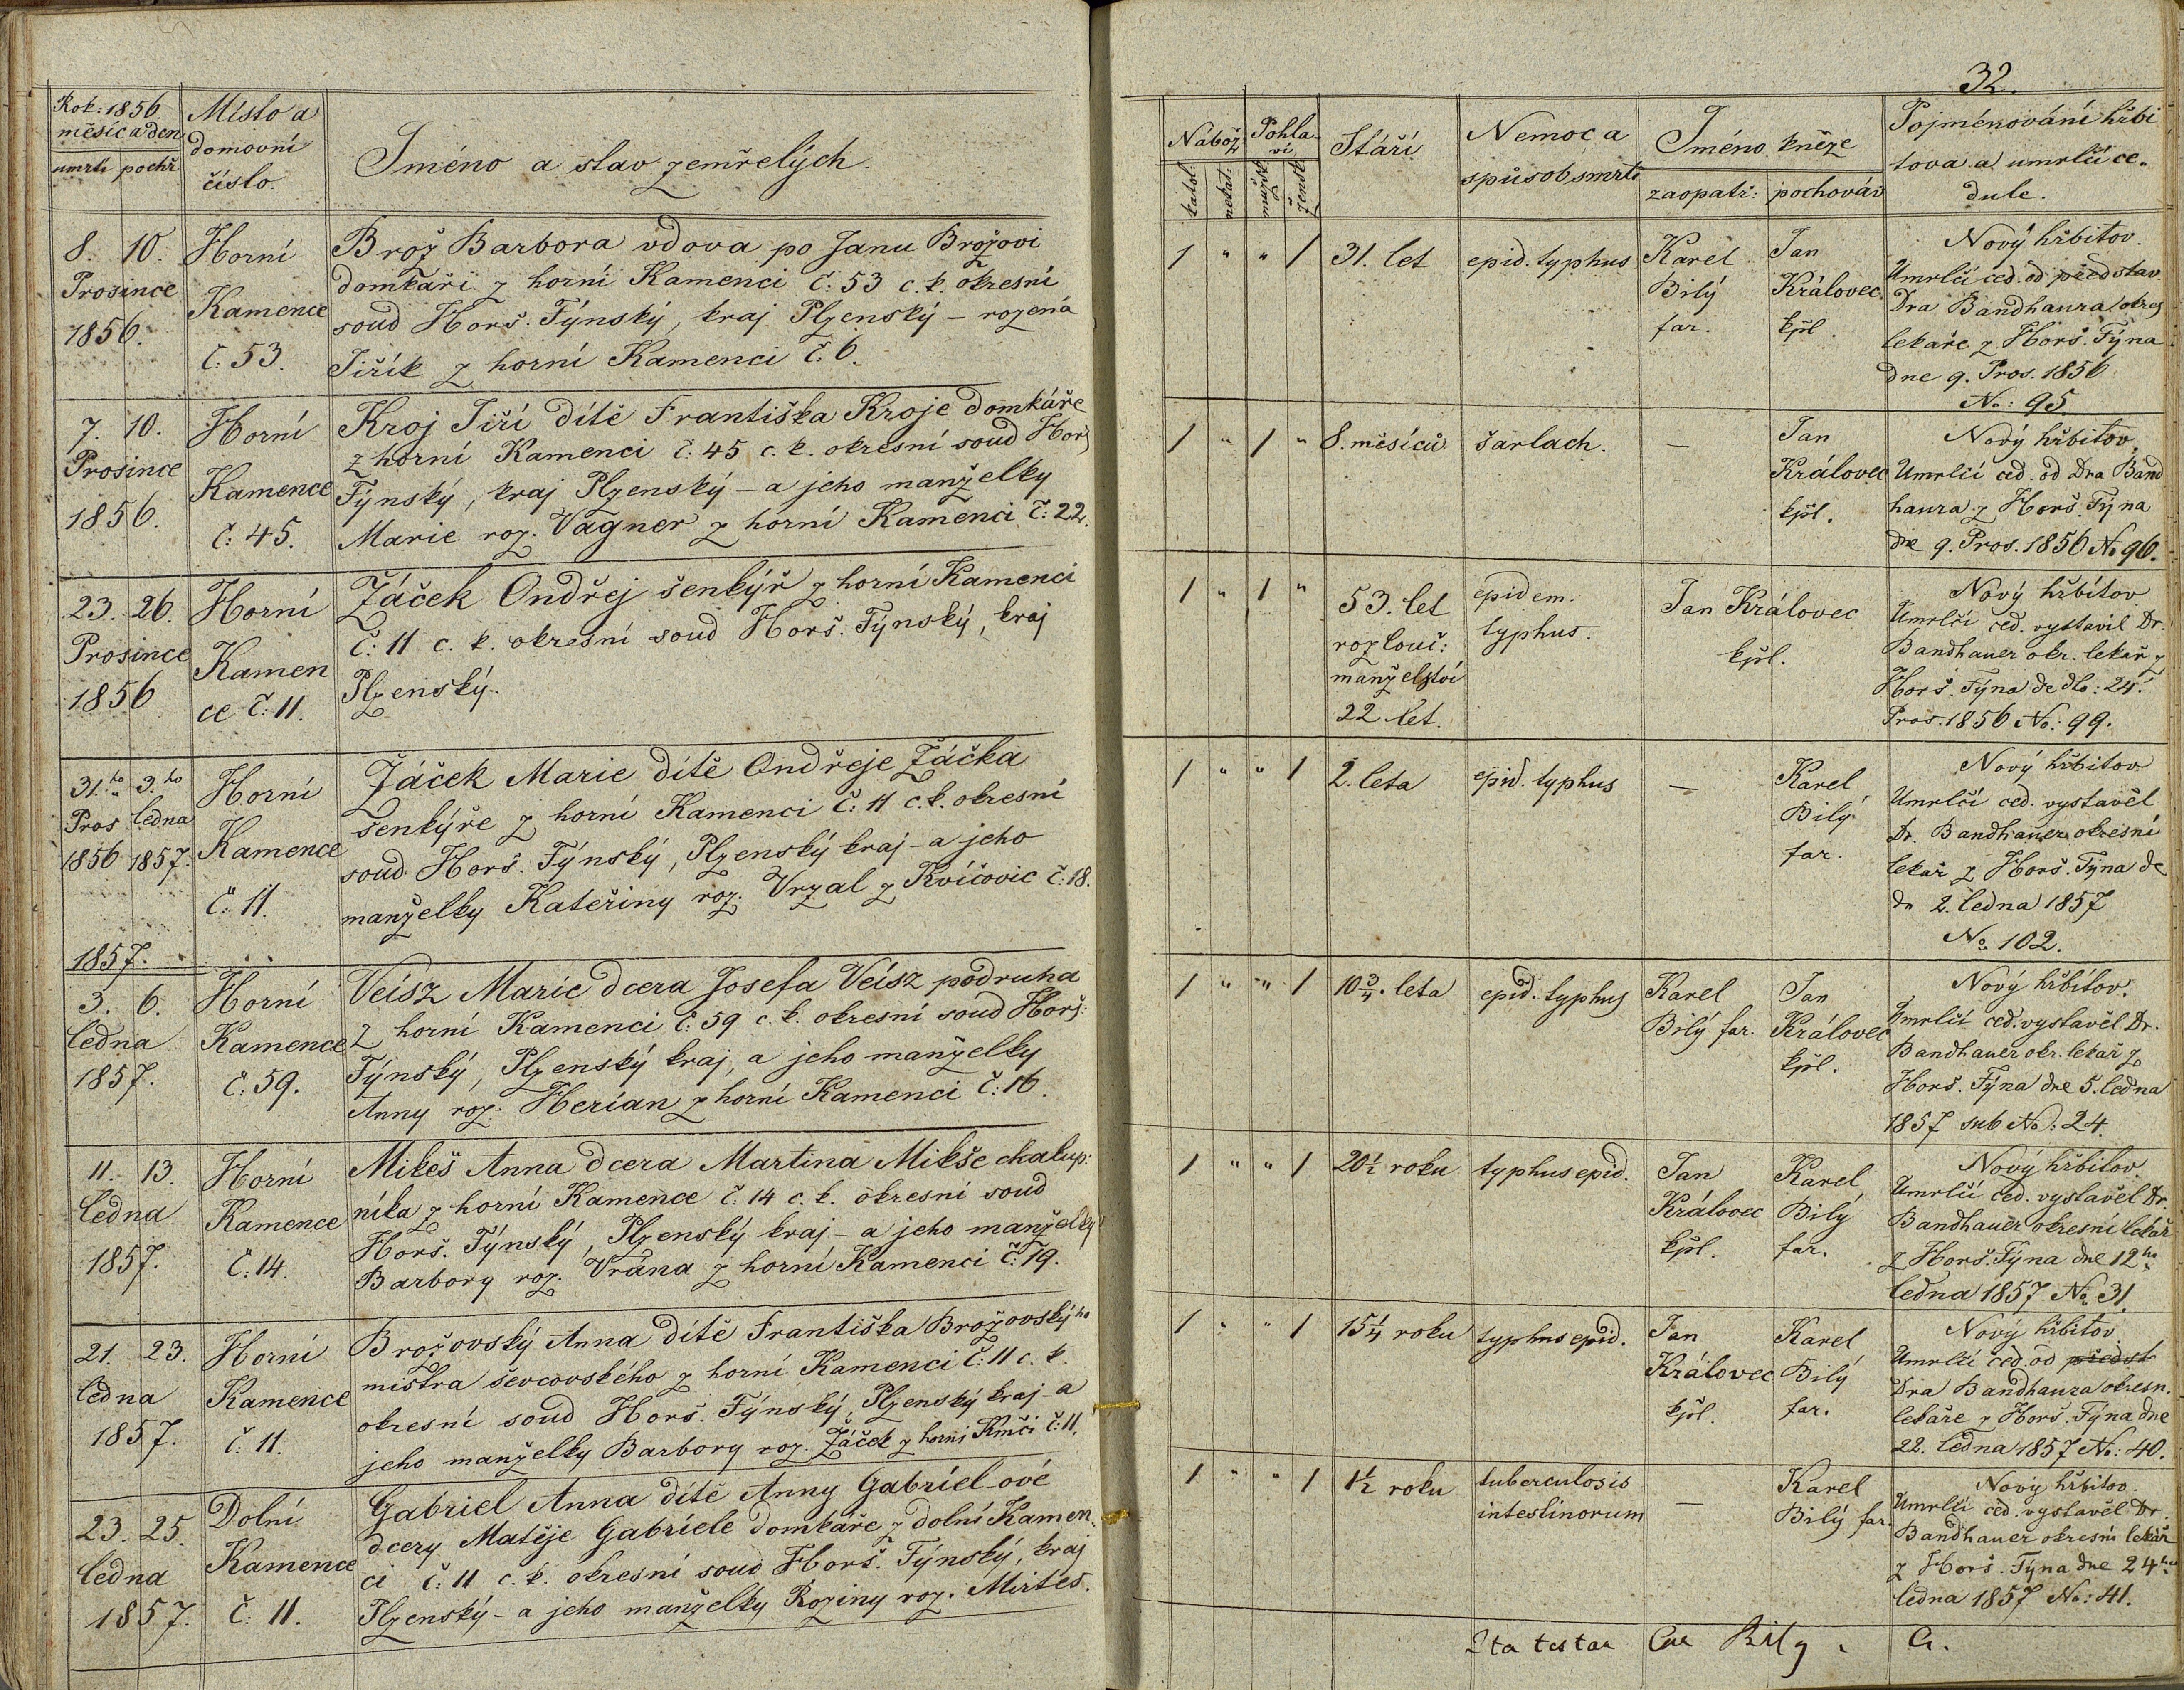 Rok: 1856.
měsíc a den
umrtí pochř
Místo a
domovní
číslo.
Jméno a stav zemřelých.
8. 10.
Prosince
1856.
Horní
Kamence
č: 53.
Brož Barbora vdova po Janu Brožovi
domkáři z horní Kamenci č: 53 c. k. okresní
soud Horš. Týnský, kraj Plzenský – rozená
Jiřík z horní Kamenci č. 6.
7. 10.
Prosince
1856.
Horní
Kamence
č: 45.
Kroj Jiří dítě Františka Kroje domkáře
z horní Kamenci č: 45 c. k. okresní soud Horš
Týnský, kraj Plzenský – a jeho manželky
Marie roz. Vagner z horní Kamenci č: 22.
23. 26.
Prosince
1856
Horní
Kamen
ce č: 11.
Žáček Ondřej šenkýř z horní Kamenci
č: 11 c. k. okresní soud Horš. Týnský, kraj
Plzenský.
31.ho 3.ho
Pros ledna
1856 1857.
Horní
Kamence
č: 11.
Žáček Marie dítě Ondřeje Žáčka
šenkýře z horní Kamenci č: 11 c. k. okresní
soud Horš. Týnský, Plzenský kraj – a jeho
manželky Kateřiny roz. Vrzal z Kvíčovic č: 18.
1857.
3. 6.
ledna
1857.
Horní
Kamence
č: 59.
Veisz Marie dcera Josefa Veisz podruha
z horní Kamenci č: 59 c. k. okresní soud Horš:
Týnský, Plzenský kraj, a jeho manželky
Anny roz. Herian z horní Kamenci č: 16.
11. 13.
ledna
1857.
Horní
Kamence
č: 14.
Mikeš Anna dcera Martina Mikše chalup:
níka z horní Kamence č. 14 c. k. okresní soud
Horš. Týnský, Plzenský kraj – a jeho manželky
Barbory roz. Vrána z horní Kamenci č: 19.
21. 23.
ledna
1857.
Horní
Kamence
č: 11.
Brožovský Anna dítě Františka Brožovskýho
mistra ševcovského z horní Kamenci č: 11 c. k.
okresní soud Horš. Týnský, Plzenský kraj – a
jeho manželky Barbory roz. Žáček z horní Kmči č: 11.
23. 25.
ledna
1857.
Dolní
Kamence
č: 11.
Gabriel Anna dítě Anny Gabriel-ové
dcery Matěje Gabriele domkáře z dolní Kamen
ci č: 11 c. k. okresní soud Horš. Týnský, kraj
Plzenský – a jeho manželky Roziny roz. Mirtes.
32.
Nábož.
katol.
nekat.
Pohla
ví
mužsk
žensk
Stáří
Nemoc a
způsob smrti
Jméno kněze
zaopatř: pochováv
Pojménování hřbi
tova a umrlčí ce-
dule.
1 " " 1
31. let
epid. typhus
Karel
Bílý
far.
Jan
Královec
kpl.
Nový hřbitov.
Umrlčí ced. od představ
Dra Bandhaura okres
lekaře z Horš. Týna
dne 9. Pros. 1856
No: 95
1 " 1 "
8. měsíců
šarlach.
—
Jan
Královec
kpl.
Nový hřbitov
Umrlčí ced. od Dra Band
haura z Horš. Týna
dne 9. Pros. 1856 No 96.
1 " 1 "
53. let
rozlouč:
manželství
22 let.
epidem.
typhus.
Jan Královec
kpl.
Nový hřbitov
Umrlčí ced. vystavil Dr.
Bandhauer okr. lekař z
Horš. Týna de dto: 24.
Pros. 1856 No: 99.
1 " " 1
2. leta
epid. typhus
—
Karel
Bílý
far.
Nový hřbitov
Umrlčí ced. vystavěl
Dr. Bandhauer okresní
lekař z Horš. Týna de
do 2. ledna 1857
No 102.
1 " " 1
10 3/4. leta
epid. typhus
Karel
Bílý far.
Jan
Královec
kpl.
Nový hřbitov.
Umrlčí ced. vystavěl Dr.
Bandhauer okr. lekař z
Horš. Týna dne 5. ledna
1857 sub No: 24.
1 " " 1
20 1/2 roku
typhus epid.
Jan
Královec
kpl.
Karel
Bílý
far.
Nový hřbitov
Umrlčí ced. vystavěl Dr.
Bandhauer okresní lekař
z Horš. Týna dne 12ho
ledna 1857 No 31.
1 " " 1
15 1/4 roku
typhus epid.
Jan
Královec
kpl.
Karel
Bílý
far.
Nový hřbitov
Umrlčí ced. od předst
Dra Bandhaura okresn.
lekaře z Horš. Týna dne
22. ledna 1857 No: 40.
1 " " 1
1 1/2 roku
tuberculosis
intestinorum
—
Karel
Bílý far.
Nový hřbitov.
Umrlčí ced. vystavěl Dr.
Bandhauer okresní lekař
z Horš. Týna dne 24ho
ledna 1857 No: 41.
Ita testar Car Bílý.